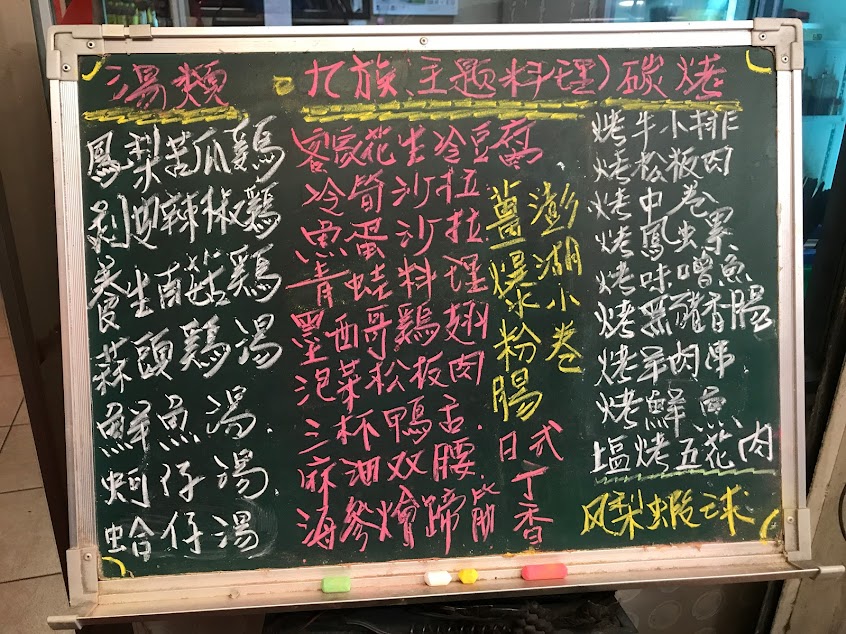 湯類
鳳梨苦瓜鷄
剥皮辣椒鷄
養生菇鷄
蒜頭鷄湯
鮮魚湯
蚵仔湯
蛤仔湯
九族、主題料理）碳烤
客家花生冷豆腐
冷筍沙拉
魚蛋沙拉
青蛙料理
墨西哥鷄翅
泡菜松板肉
三杯鴨舌
麻油双腰
海參燴蹄筋
澎湖小卷
薑爆粉腸
日式丁香
烤牛小排
烤松板肉
烤中卷
烤鳳螺
烤味噌魚
烤黑豬香腸
烤羊肉串
烤鮮魚
塩烤五花肉
凤梨蝦球